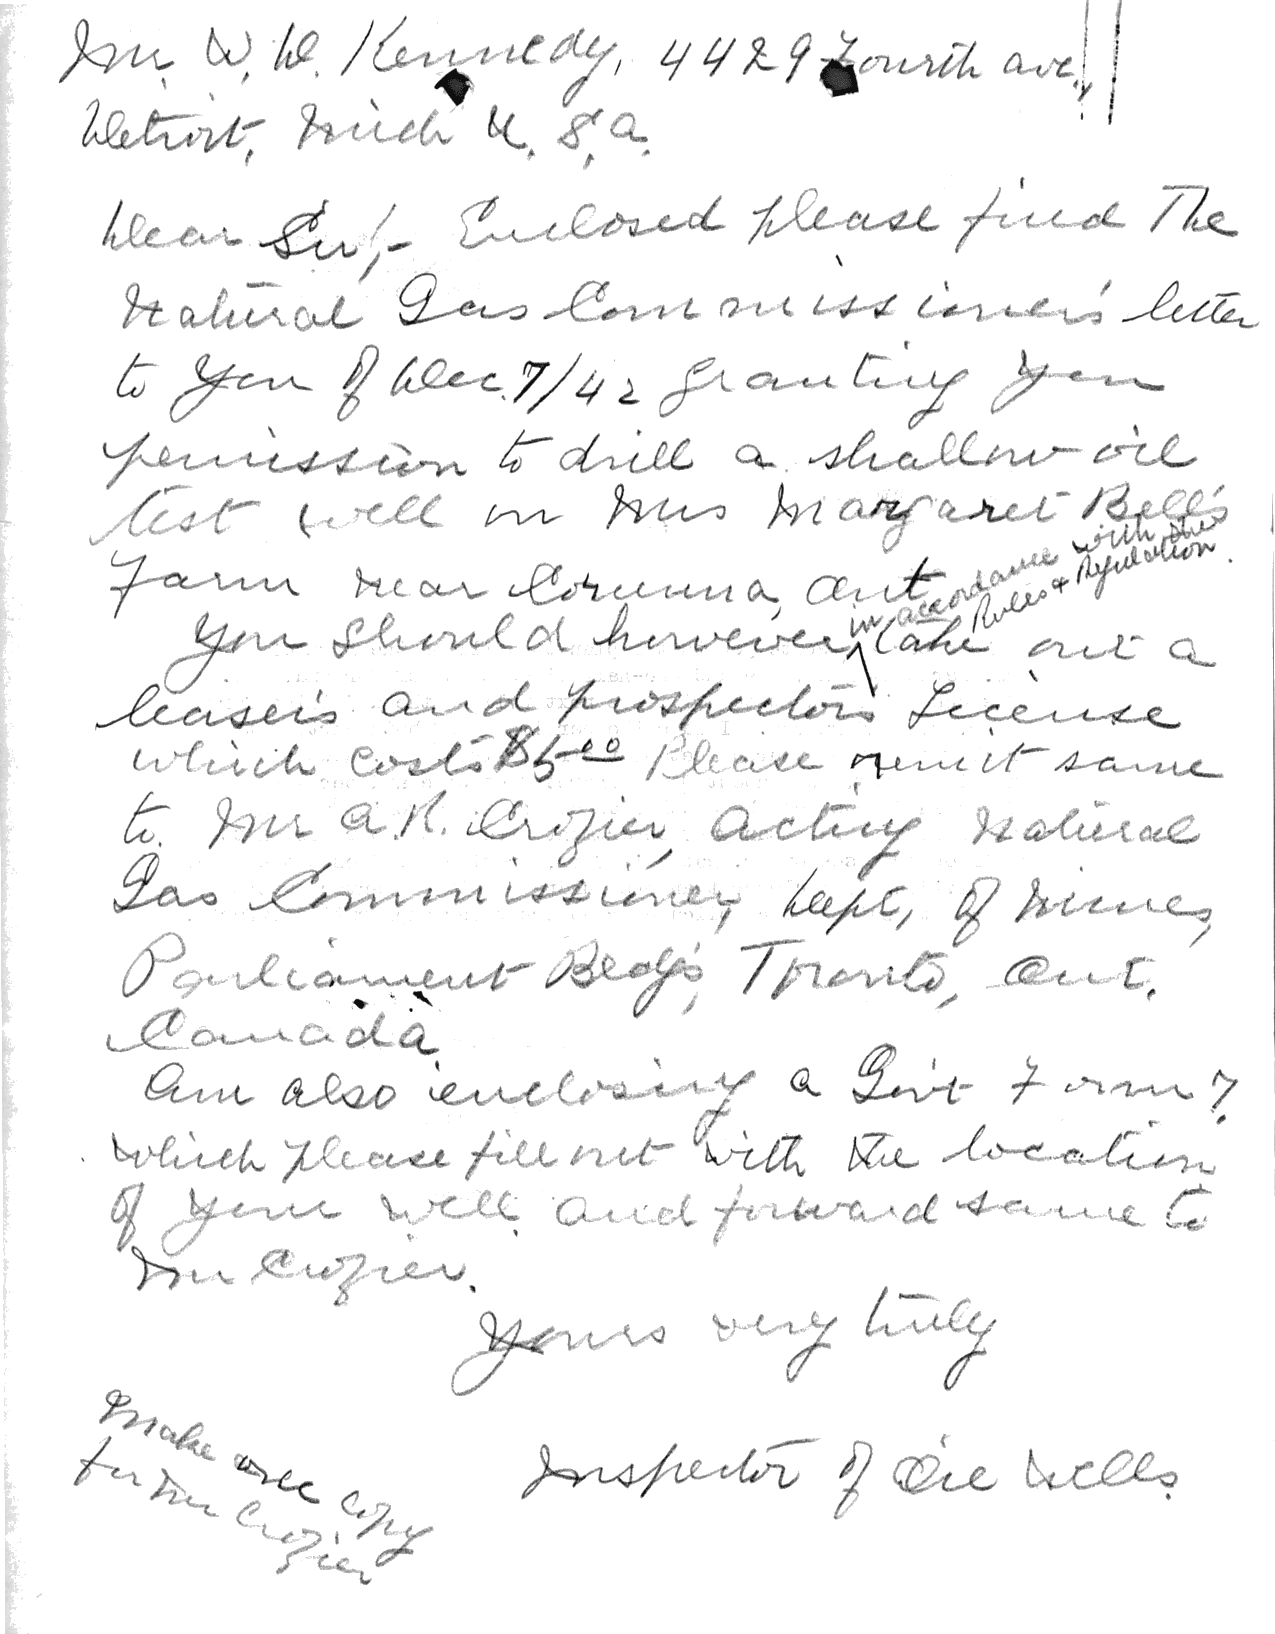 Mr. W. D. Kennedy, 4429 Fourth ave.,
Detroit, Mich U. S. a.
Dear Sir,- Enclosed please find The
Natural Gas Commissioner's letter
to you of Dec. 7/42 granting you
permission to drill a shallow oil
test well on Mrs Margaret Bell's
Farm near Corunna, Ont
in accordance with the
Rules & Regulation.
You should however, take out a
leaser's and prospectors License
which costs $5.00 Please remit same
to Mr A. R. Crozier, acting Natural
Gas Commissioner, Dept, of Mines,
Parliament Bldg's, Toronto, Ont.
Canada
Am also enclosing a Gov't Form 7.
which please fill out with the location
of your well and forward same to
Mr Crozier.
Yours very truly
Inspector of Oil Wells.
Make one copy
for Mr Crozier